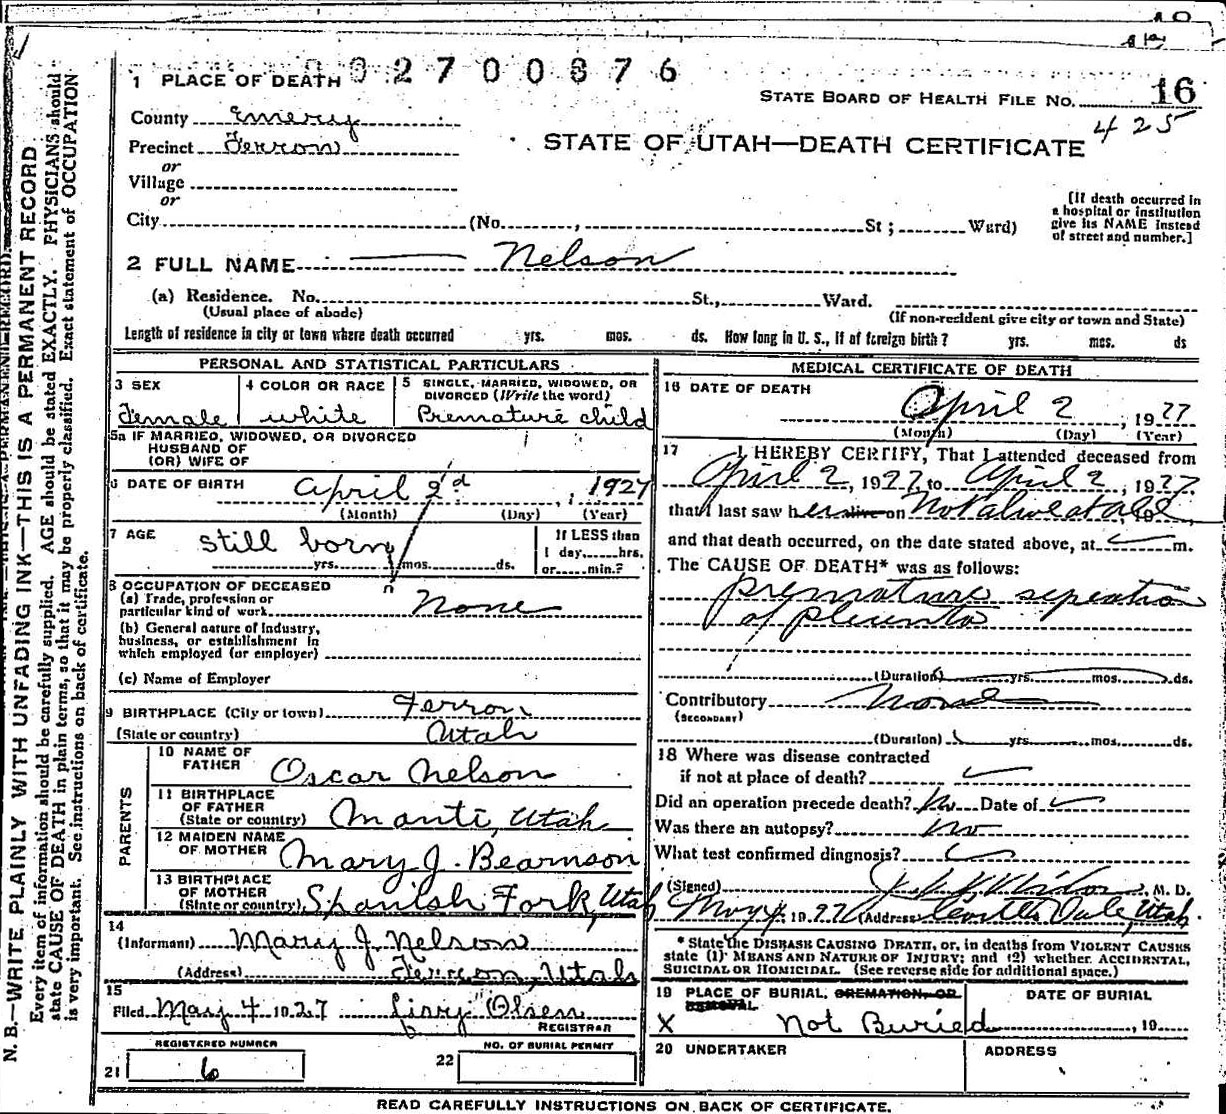 02700876
1 PLACE OF DEATH
STATE BOARD OF HEALTH FILE No. 16
425
County Emery
Precinct Ferron
STATE OF UTAH—DEATH CERTIFICATE
or
Village
or
City (No. , St ; Ward)
[If death occurred in
a hospital or institution
give its NAME instead
of street and number.]
2 FULL NAME — Nelson
(a) Residence. No. St., Ward.
(Usual place of abode)
(If non-resident give city or town and State)
Length of residence in city or town where death occurred yrs. mos. ds. How long in U. S., if of foreign birth? yrs. mos. ds
PERSONAL AND STATISTICAL PARTICULARS
3 SEX
Female
4 COLOR OR RACE
white
5 SINGLE, MARRIED, WIDOWED, OR
DIVORCED (Write the word)
Premature child
5a IF MARRIED, WIDOWED, OR DIVORCED
HUSBAND OF
(OR) WIFE OF
6 DATE OF BIRTH April 2d, 1927
(Month) (Day) (Year)
7 AGE
still born
yrs. mos. ds.
If LESS than
1 day, hrs.
or min.?
8 OCCUPATION OF DECEASED
(a) Trade, profession or
particular kind of work None
(b) General nature of Industry,
business, or establishment in
which employed (or employer)
(c) Name of Employer
9 BIRTHPLACE (City or town) Ferron
(State or country) Utah
PARENTS
10 NAME OF
FATHER Oscar Nelson
11 BIRTHPLACE
OF FATHER
(State or country) Manti, Utah
12 MAIDEN NAME
OF MOTHER Mary J. Bearnson
13 BIRTHPLACE
OF MOTHER
(State or country) Spanish Fork, Utah
14
(Informant) Mary J. Nelson
(Address) Ferron, Utah
15
Filed May 4 1927 Olsen
REGISTRAR
REGISTERED NUMBER
21 6
NO. OF BURIAL PERMIT
22
MEDICAL CERTIFICATE OF DEATH
16 DATE OF DEATH
April 2, 1927
(Month) (Day) (Year)
17 I HEREBY CERTIFY, That I attended deceased from
April 2, 1927, to April 2, 1927
that I last saw her alive on Not alive at all, 19
and that death occurred, on the date stated above, at m.
The CAUSE OF DEATH* was as follows:
premature seperation
of placenta
(Duration) yrs. mos. ds.
Contributory None
(SECONDARY)
(Duration) yrs. mos. ds.
18 Where was disease contracted
if not at place of death?
Did an operation precede death? No Date of
Was there an autopsy? No
What test confirmed diagnosis?
(Signed) , M. D.
May 4 1927 (Address Castle Dale, Utah
* State the DISEASE CAUSING DEATH, or, in deaths from VIOLENT CAUSES
state (1) MEANS AND NATURE OF INJURY; and (2) whether ACCIDENTAL,
SUICIDAL OR HOMICIDAL. (See reverse side for additional space.)
19 PLACE OF BURIAL, CREMATION, OR
REMOVAL
DATE OF BURIAL
X Not Buried , 19
20 UNDERTAKER
ADDRESS
READ CAREFULLY INSTRUCTIONS ON BACK OF CERTIFICATE.
N. B.—WRITE PLAINLY WITH UNFADING INK—THIS IS A PERMANENT RECORD
Every item of information should be carefully supplied. AGE should be stated EXACTLY. PHYSICIANS should
state CAUSE OF DEATH in plain terms, so that it may be properly classified. Exact statement of OCCUPATION
is very important. See instructions on back of certificate.